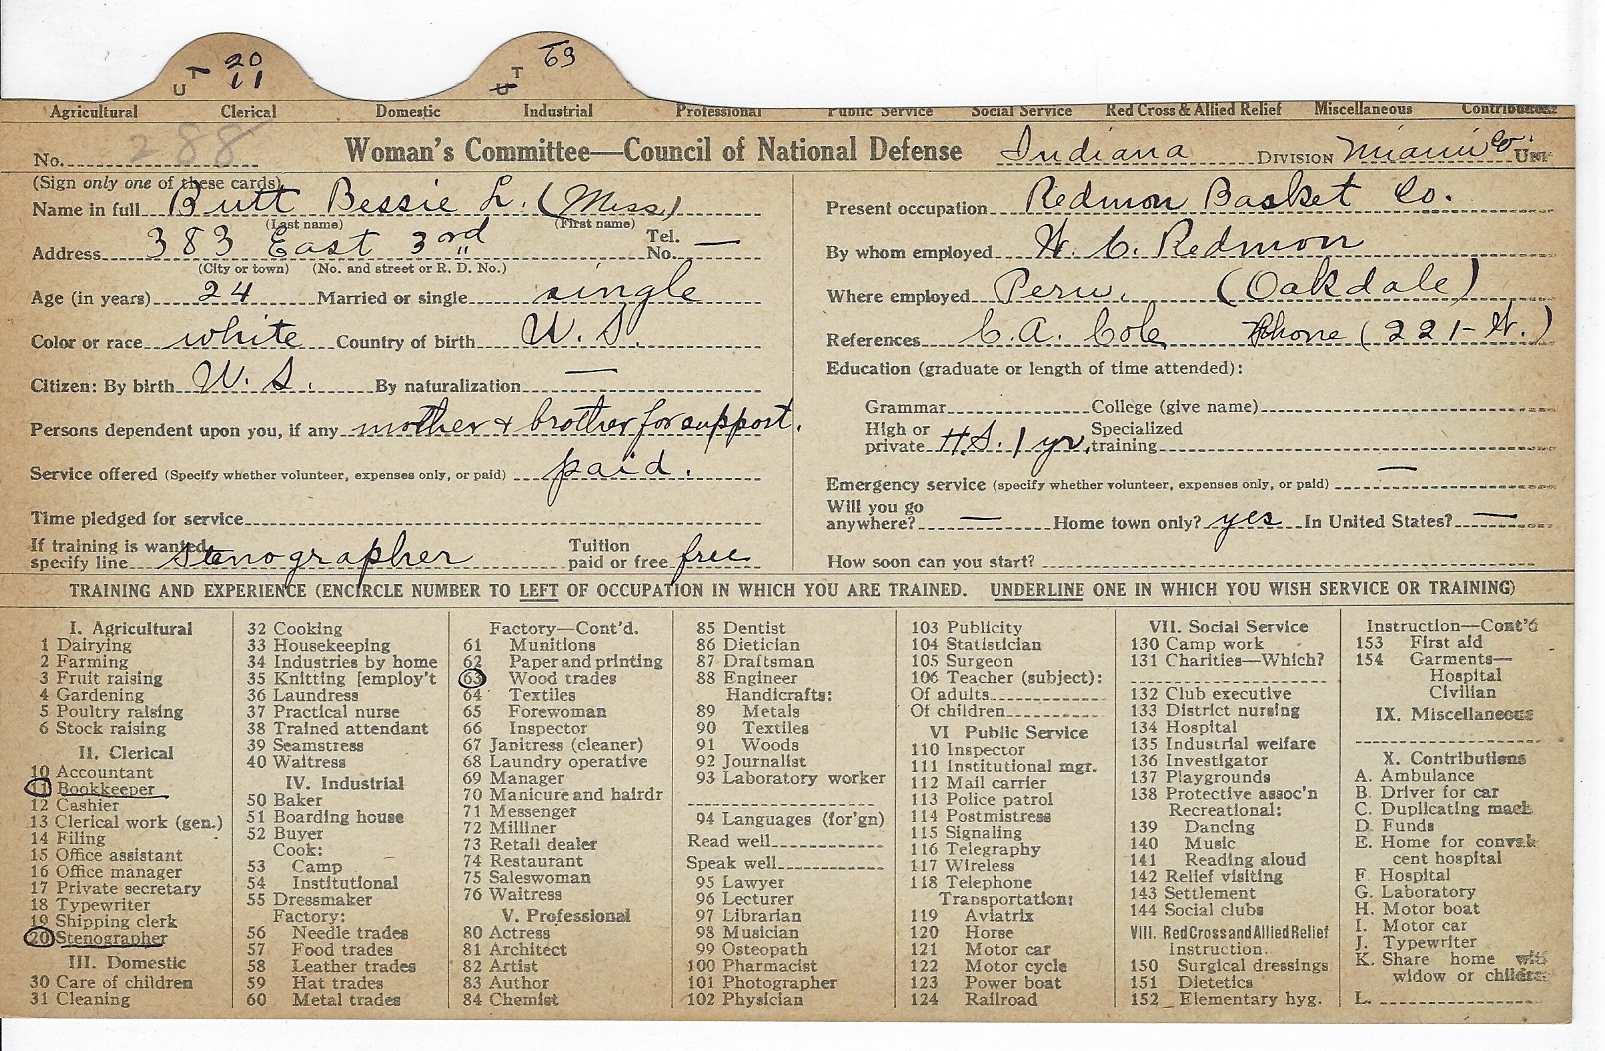 20 T U 11
63 T U
Agricultural Clerical Domestic Industrial Professional Public Service Social Service Red Cross & Allied Relief Miscellaneous Contributions
No. 288 Woman's Committee—Council of National Defense Indiana DIVISION Miami Co. UNIT
(Sign only one of these cards)
Name in full Butt Bessie L. (Miss)
(Last name) (First name)
Address 383 East 3rd Tel. No. —
(City or town) (No. and street or R. D. No.)
Age (in years) 24 Married or single single
Color or race white Country of birth U. S.
Citizen: By birth U. S. By naturalization —
Persons dependent upon you, if any mother & brother for support.
Service offered (Specify whether volunteer, expenses only, or paid) paid.
Time pledged for service
If training is wanted specify line Stenographer Tuition paid or free free
Present occupation Redmon Basket Co.
By whom employed W. C. Redmon
Where employed Peru. (Oakdale)
References C. A. Cole Phone (221-W.)
Education (graduate or length of time attended):
Grammar College (give name)
High or private H.S. 1 yr. Specialized training
Emergency service (specify whether volunteer, expenses only, or paid) —
Will you go anywhere? — Home town only? yes In United States? —
How soon can you start?
TRAINING AND EXPERIENCE (ENCIRCLE NUMBER TO LEFT OF OCCUPATION IN WHICH YOU ARE TRAINED. UNDERLINE ONE IN WHICH YOU WISH SERVICE OR TRAINING)
I. Agricultural
1 Dairying
2 Farming
3 Fruit raising
4 Gardening
5 Poultry raising
6 Stock raising
II. Clerical
10 Accountant
11 Bookkeeper
12 Cashier
13 Clerical work (gen.)
14 Filing
15 Office assistant
16 Office manager
17 Private secretary
18 Typewriter
19 Shipping clerk
20 Stenographer
III. Domestic
30 Care of children
31 Cleaning
32 Cooking
33 Housekeeping
34 Industries by home
35 Knitting [employ't
36 Laundress
37 Practical nurse
38 Trained attendant
39 Seamstress
40 Waitress
IV. Industrial
50 Baker
51 Boarding house
52 Buyer
Cook:
53 Camp
54 Institutional
55 Dressmaker
Factory:
56 Needle trades
57 Food trades
58 Leather trades
59 Hat trades
60 Metal trades
Factory—Cont'd.
61 Munitions
62 Paper and printing
63 Wood trades
64 Textiles
65 Forewoman
66 Inspector
67 Janitress (cleaner)
68 Laundry operative
69 Manager
70 Manicure and hairdr
71 Messenger
72 Milliner
73 Retail dealer
74 Restaurant
75 Saleswoman
76 Waitress
V. Professional
80 Actress
81 Architect
82 Artist
83 Author
84 Chemist
85 Dentist
86 Dietician
87 Draftsman
88 Engineer
Handicrafts:
89 Metals
90 Textiles
91 Woods
92 Journalist
93 Laboratory worker
94 Languages (for'gn)
Read well
Speak well
95 Lawyer
96 Lecturer
97 Librarian
98 Musician
99 Osteopath
100 Pharmacist
101 Photographer
102 Physician
103 Publicity
104 Statistician
105 Surgeon
106 Teacher (subject):
Of adults
Of children
VI Public Service
110 Inspector
111 Institutional mgr.
112 Mail carrier
113 Police patrol
114 Postmistress
115 Signaling
116 Telegraphy
117 Wireless
118 Telephone
Transportation:
119 Aviatrix
120 Horse
121 Motor car
122 Motor cycle
123 Power boat
124 Railroad
VII. Social Service
130 Camp work
131 Charities—Which?
132 Club executive
133 District nursing
134 Hospital
135 Industrial welfare
136 Investigator
137 Playgrounds
138 Protective assoc'n
Recreational:
139 Dancing
140 Music
141 Reading aloud
142 Relief visiting
143 Settlement
144 Social clubs
VIII. Red Cross and Allied Relief
Instruction.
150 Surgical dressings
151 Dietetics
152 Elementary hyg.
Instruction—Cont'd
153 First aid
154 Garments—
Hospital
Civilian
IX. Miscellaneous
X. Contributions
A. Ambulance
B. Driver for car
C. Duplicating mach
D. Funds
E. Home for conval-
cent hospital
F. Hospital
G. Laboratory
H. Motor boat
I. Motor car
J. Typewriter
K. Share home with
widow or children
L.